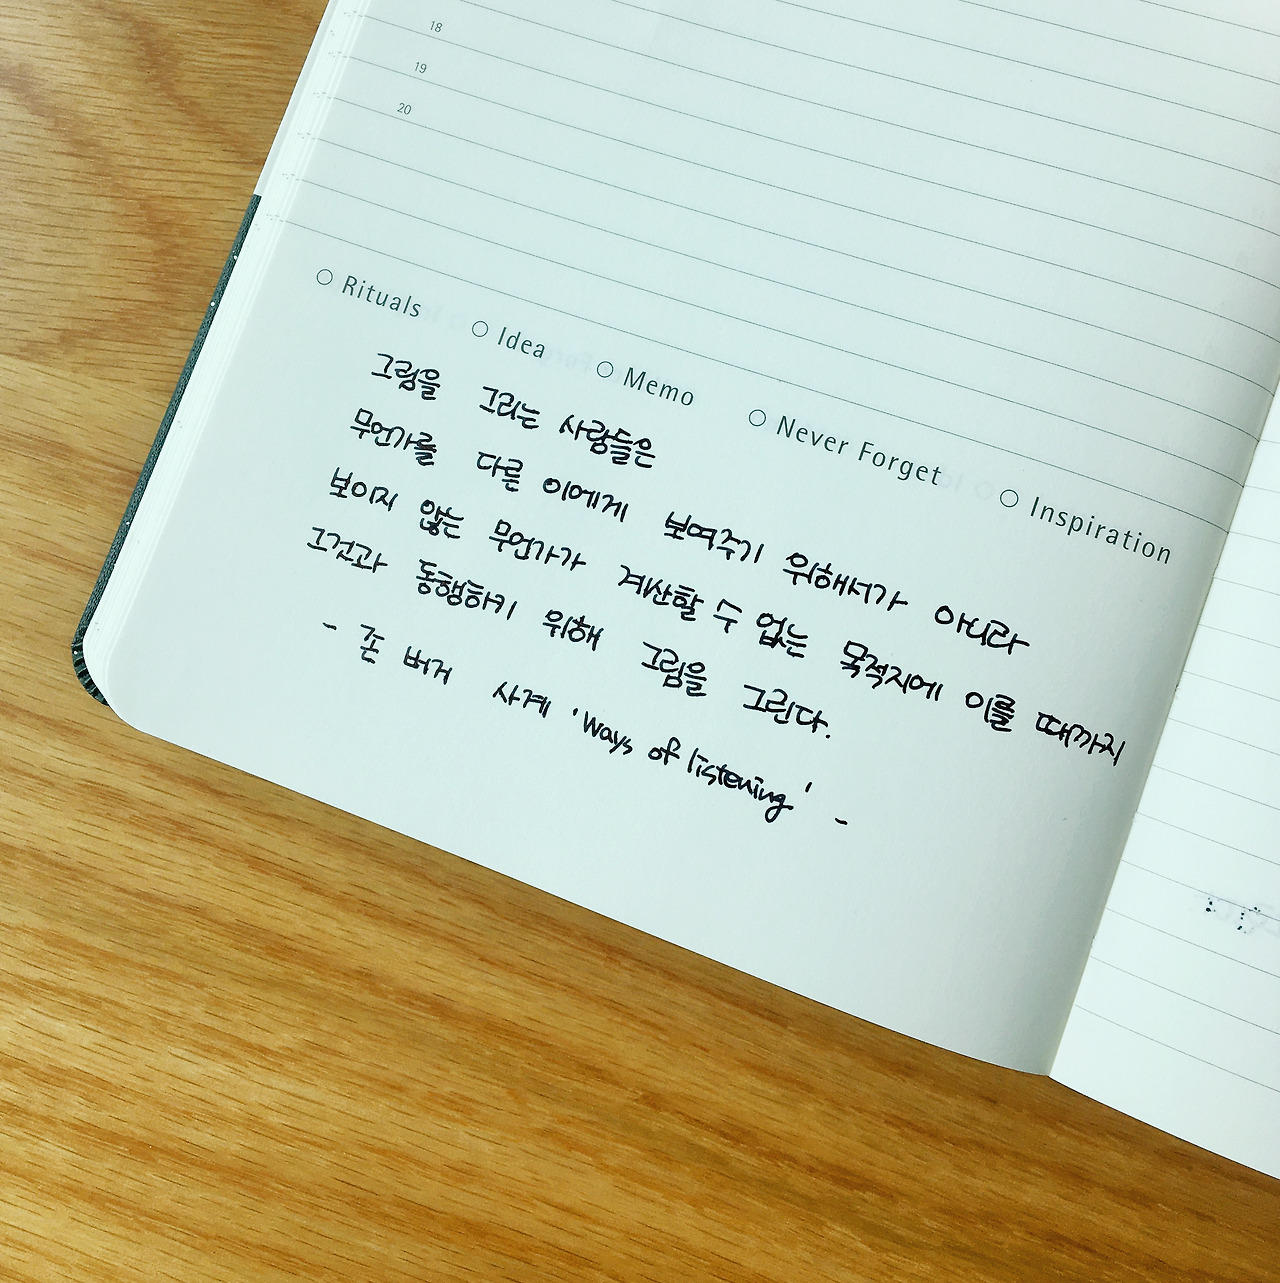 18
19
20
Rituals Idea Memo Never Forget Inspiration
그림을 그리는 사람들은
무언가를 다른 이에게 보여주기 위해서가 아니라
보이지 않는 무언가가 계산할 수 없는 목적지에 이를 때까지
그것과 동행하기 위해 그림을 그린다.
- 존 버거 사계 'Ways of listening' -